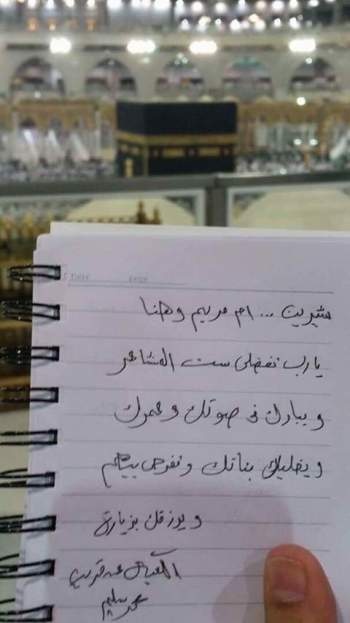 شيرين ... ام مريم وهنا
يارب تفضلى ست المشاعر
ويبارك فى صوتك وعمرك
ويخليلك بناتك وتفرحى بيهم
ويرزقك بزيارة
الكعبه عن قريب
سليم